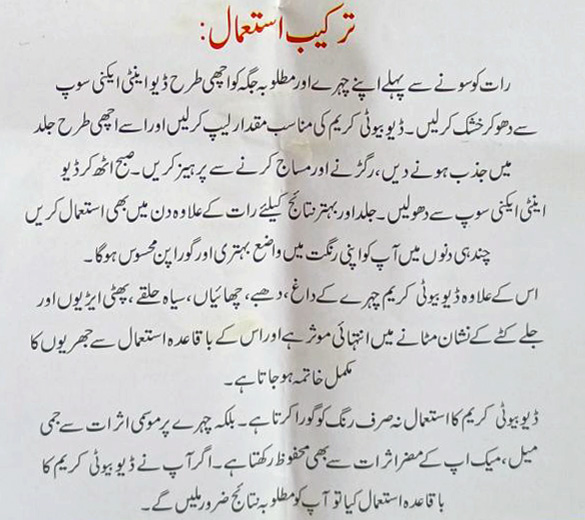 ترکیب استعمال:
رات کو سونے سے پہلے اپنے چہرے اور مطلوبہ جگہ کو اچھی طرح ڈیو اینٹی ایکنی سوپ
سے دھو کر خشک کرلیں۔ ڈیو بیوٹی کریم کی مناسب مقدار لیپ کرلیں اور اسے اچھی طرح جلد
میں جذب ہونے دیں، رگڑنے اور مساج کرنے سے پرہیز کریں۔ صبح اٹھ کر ڈیو
اینٹی ایکنی سوپ سے دھولیں۔ جلد اور بہتر نتائج کیلئے رات کے علاوہ دن میں بھی استعمال کریں
چند ہی دنوں میں آپ کو اپنی رنگت میں واضع بہتری اور گورا پن محسوس ہوگا۔
اس کے علاوہ ڈیو بیوٹی کریم چہرے کے داغ، دھبے، چھائیاں، سیاہ حلقے، پھٹی ایڑیوں اور
جلے کٹے کے نشان مٹانے میں انتہائی موثر ہے اور اس کے باقاعدہ استعمال سے جھریوں کا
مکمل خاتمہ ہو جاتا ہے۔
ڈیو بیوٹی کریم کا استعمال نہ صرف رنگ کو گورا کرتا ہے۔ بلکہ چہرے پر موسمی اثرات سے جمی
میل، میک اپ کے مضر اثرات سے بھی محفوظ رکھتا ہے۔ اگر آپ نے ڈیو بیوٹی کریم کا
باقاعدہ استعمال کیا تو آپ کو مطلوبہ نتائج ضرور ملیں گے۔